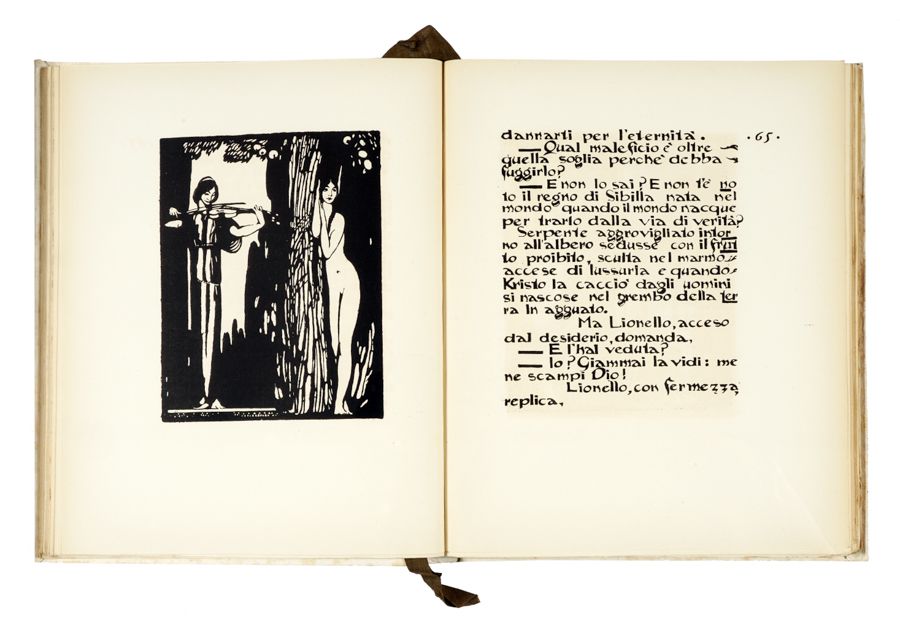 dannarti per l'eternità.
·65·
— Qual maleficio è oltre
quella soglia perchè debba
fuggirlo?
— E non lo sai? E non t'è no
to il regno di Sibilla nata nel
mondo quando il mondo nacque
per trarlo dalla via di verità?
Serpente aggrovigliato intor
no all'albero sedusse con il frut
to proibito, sculta nel marmo
accese di lussuria e quando
Kristo la cacciò dagli uomini
si nascose nel grembo della ter
ra in agguato.
Ma Lionello, acceso
dal desiderio, domanda,
— E l'hai veduta?
— Io? Giammai la vidi: me
ne scampi Dio!
Lionello, con fermezza
replica,